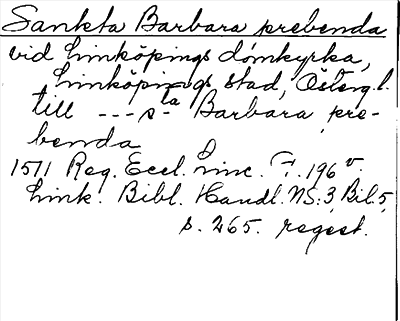 Sankta Barbara prebenda
vid Linköpings domkyrka,
Linköpings stad, Österg.l.
till --- s-ta Barbara pre-
benda
1511 Reg. Eccl. Linc. F. 196 v.
Link. Bibl. Handl. NS:3, Bil. 5,
s. 265. regest.